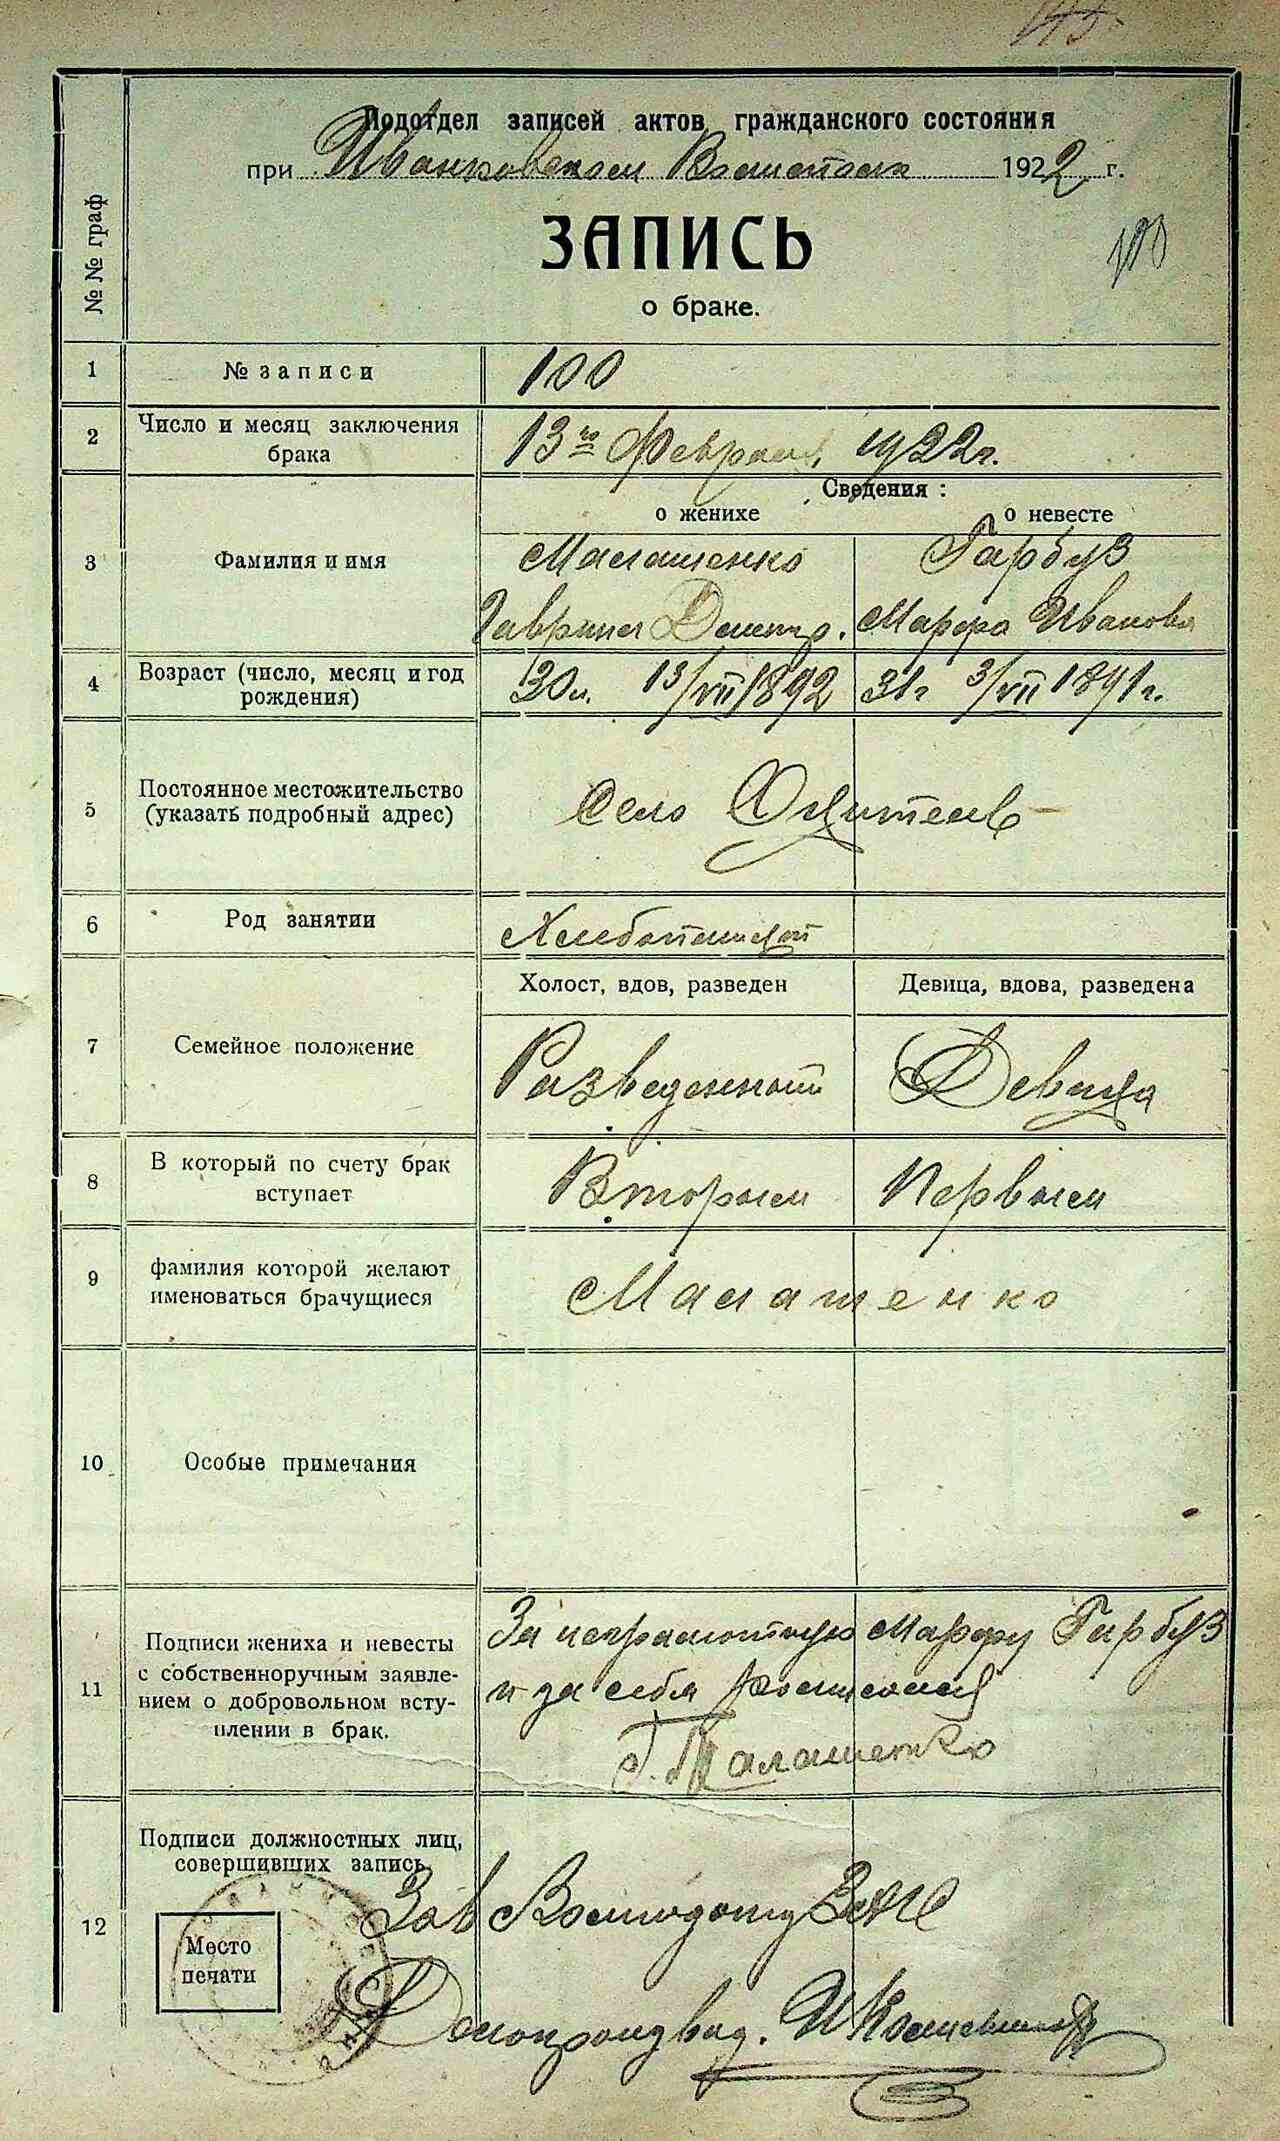 Подотдел записей актов гражданского состояния
при Иванковском 1922 г.
100
ЗАПИСЬ
о браке.
№ № граф
1 № записи 100
2 Число и месяц заключения
брака
13го Февраля 1922 г.
Сведения :
о женихе о невесте
3 Фамилия и имя
Малашенко Гарбуз
Гаврииил Дмитр. Марфа Иванова
4 Возраст (число, месяц и год
рождения)
30 л. 13/VII 1892 31 г 3/VII 1891 г.
5 Постоянное местожительство
(указать подробный адрес)
Село
6 Род занятии
7 Семейное положение
Холост, вдов, разведен Девица, вдова, разведена
Разведенный Девица
8 В который по счету брак
вступает
Вторым Первым
9 фамилия которой желают
именоваться брачущиеся
Малашенко
10 Особые примечания
11 Подписи жениха и невесты
с собственноручным заявле-
нием о добровольном всту-
плении в брак.
За неграмотную Марфу Гарбуз
и за себя росписался
Г. Малашенко
12 Подписи должностных лиц,
совершивших запись.
Место
печати
Зав ЗАГС
Делопроизвод.